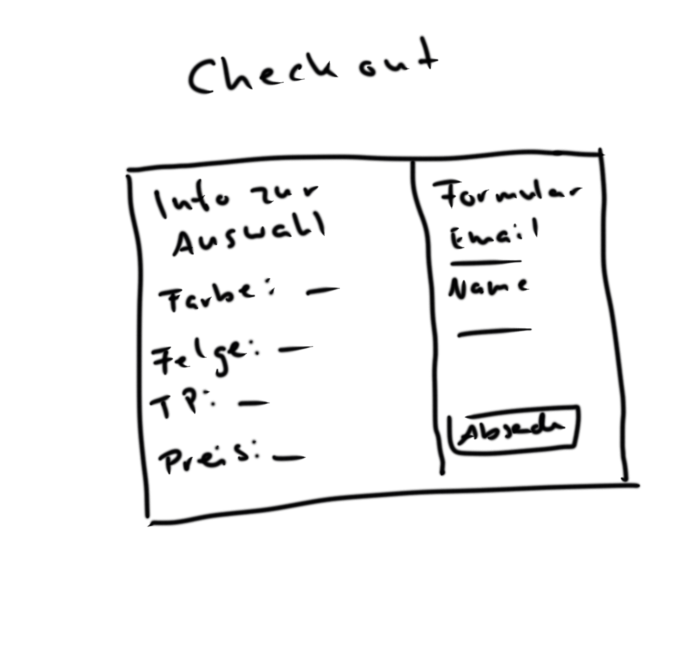 Checkout
Info zur
Auswahl
Farbe:
Felge:
TP:
Preis:
Formular
Email
Name
Absenden